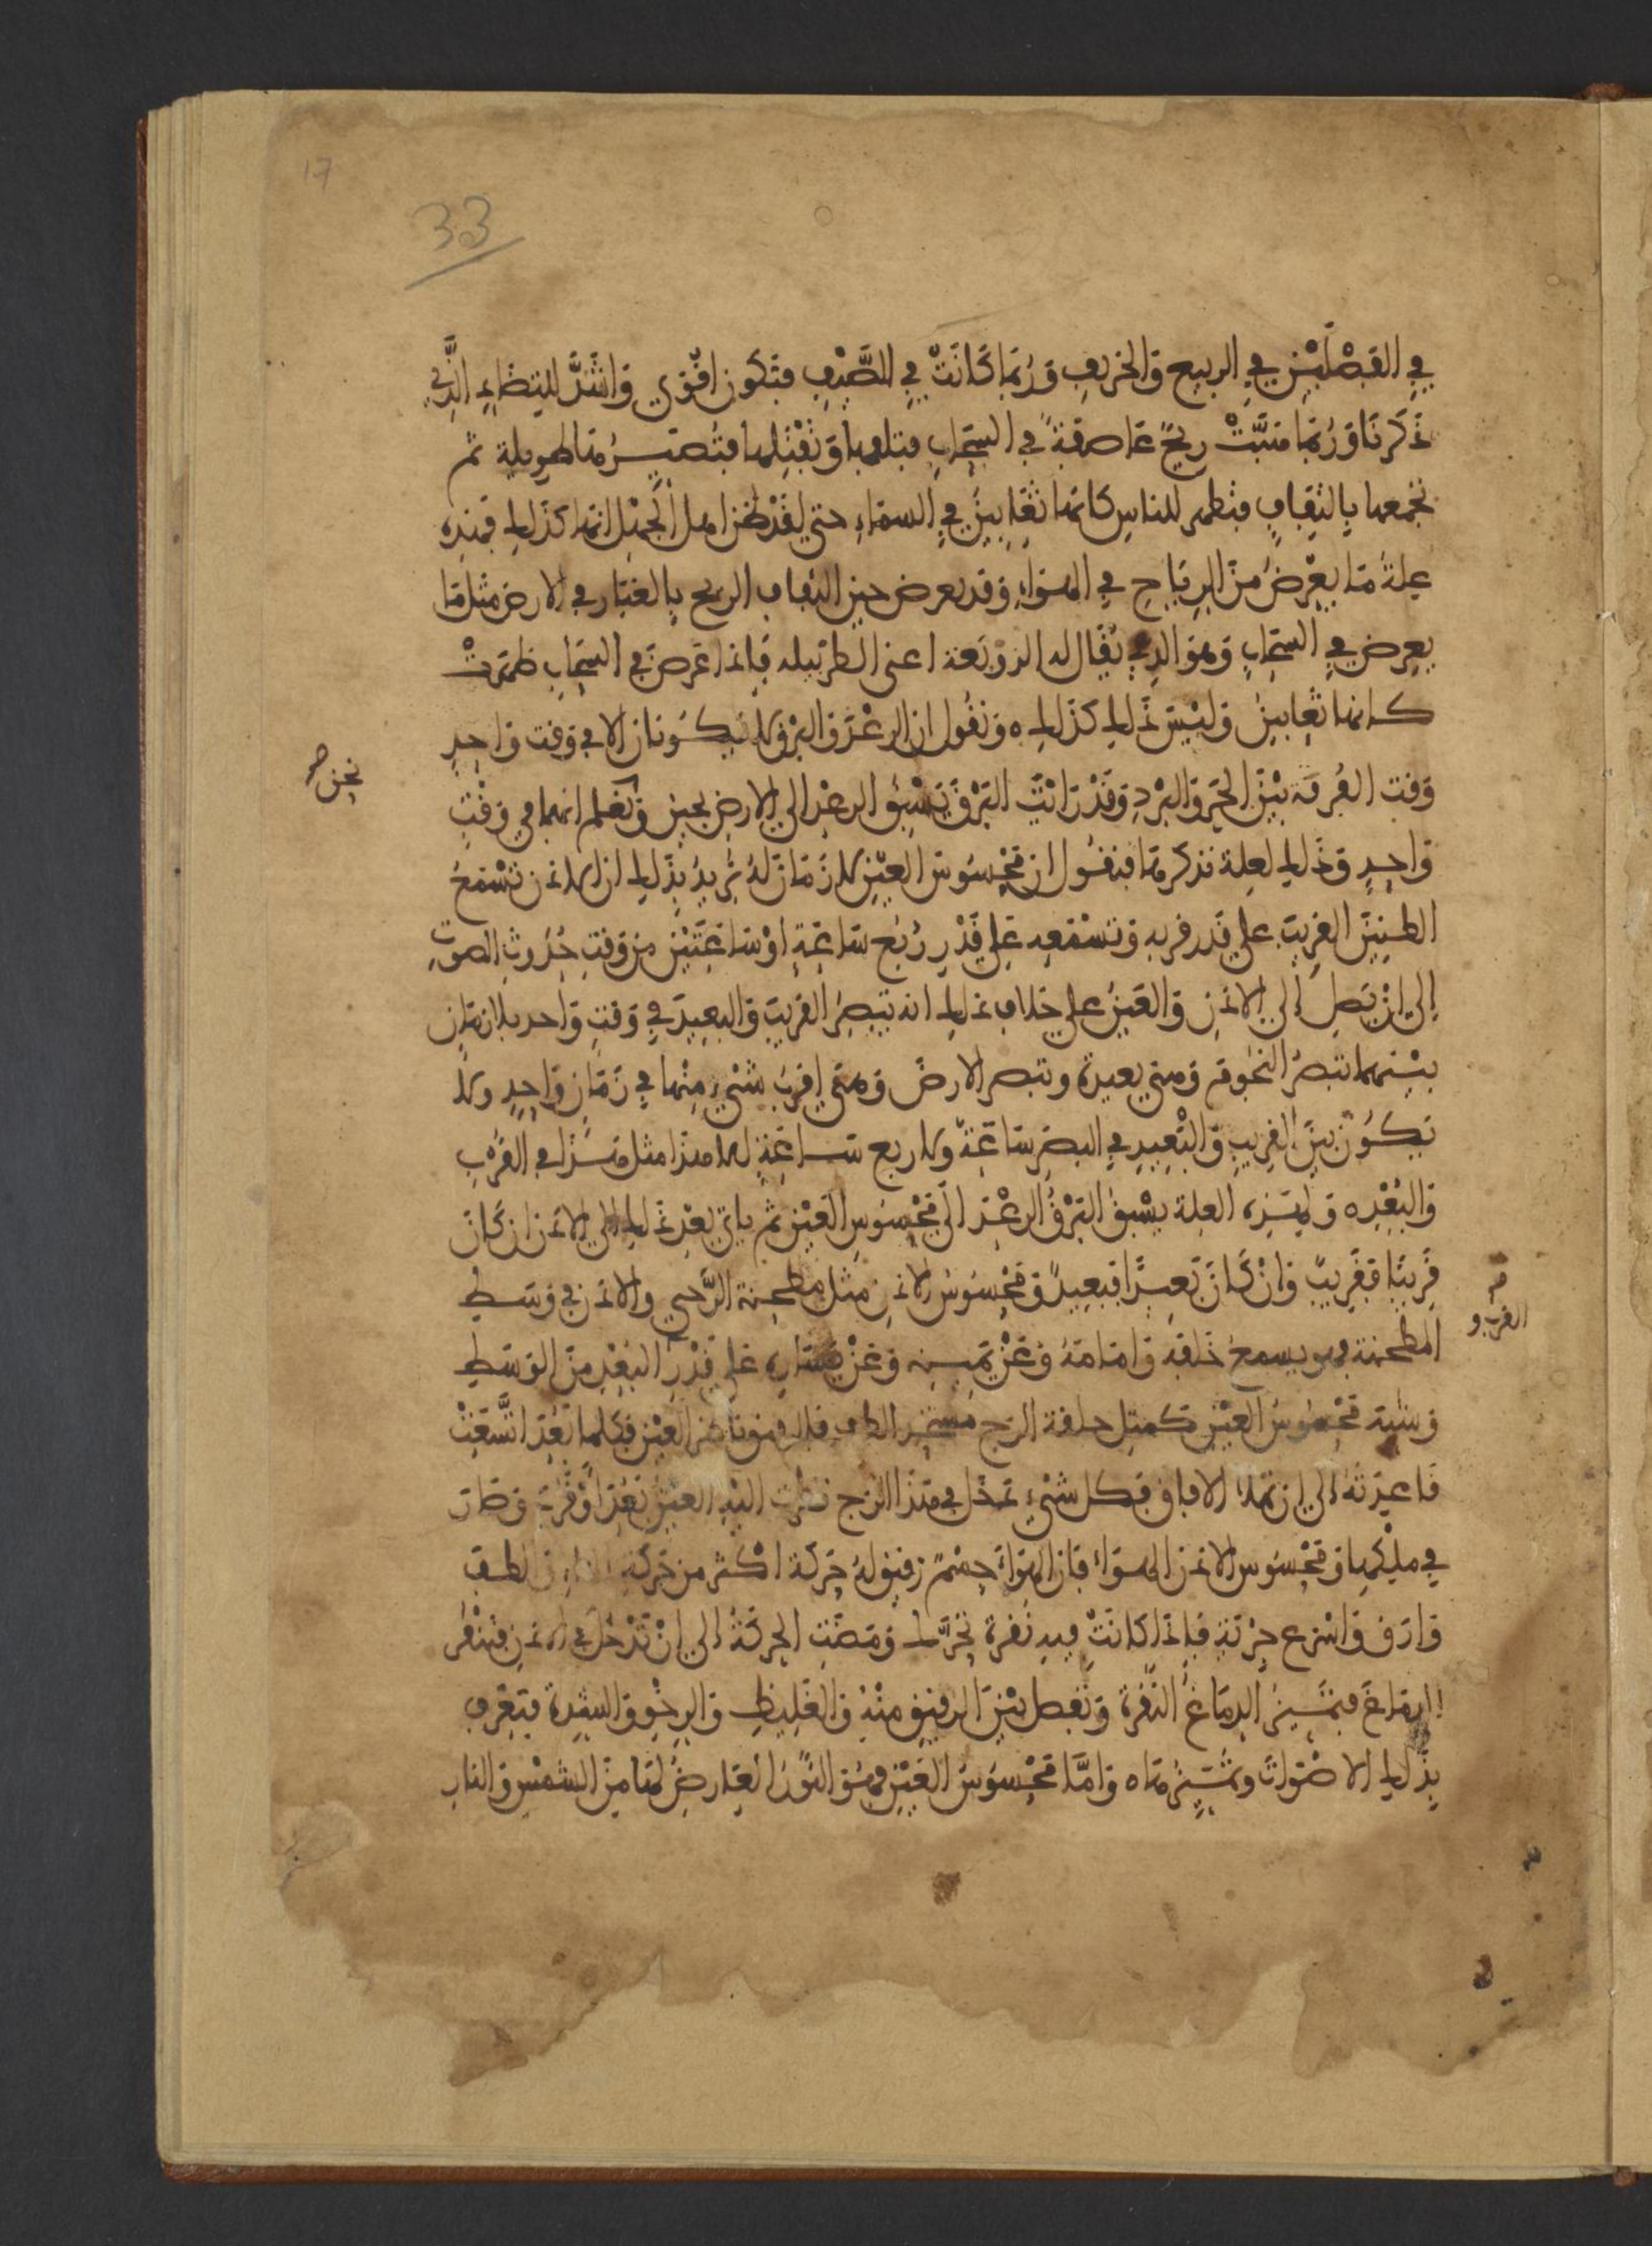 17
33
في الفصلين في الربيع والخريف وربما كانت في الصيف فتكون اقوى واشد للبيضاء الذي
ذكرنا وربما هبت ريح عاصفة في السحاب فتلعبها وتفتلها فتصيرها طويلة ثم
تجمعها بالتفاف فتظهر للناس كانها ثعابين في السماء حتى لقد ظن اهل الجهل انها كذلك فهذه
علة ما يعرض من الرياح في الهواء وقد يعرض حين التفاف الريح بالغبار في الارض مثل ما
يعرض في السحاب وهو الذي يقال له الزوبعة اعني فاذا عرض في السحاب ظهرت
كانها ثعابين وليس ذلك كذلك ونقول ان الرعد والبرق لا يكونان الا في وقت واحد
وقت الفرقة بين الحر والبرد وقد رايت البرق يسبق الرعد الى الارض بحين ونعلم انهما في وقت
نحن صح
واحد وذلك لعلة نذكرها فنقول ان محسوس العين لا زمان له نريد بذلك ان الاذن تسمع
الطنين القريب على قدر قربه وتسمعه على قدر ربع ساعة او ساعتين من وقت حدوث الصوت
الى ان يصل الى الاذن والعين على خلاف ذلك انه تبصر القريب والبعيد في وقت واحد بلا زمان
بينهما تبصر النجوم وهي بعيدة وتبصر الارض وهي اقرب شيء منها في زمان واحد ولا
يكون بين القريب والبعيد في البصر ساعة ولا ربع ساعة لا هذا مثل هذا في القرب
والبعد ولهذه العلة يسبق البرق الرعد الى محسوس العين ثم ياتي بعد ذلك الى الاذن ان كان
قريبا فقريب وان كان بعيدا فبعيد ومحسوس الاذن مثل مطحنة الرحى والاذن في وسط
القرب و
المطحنة وهو يسمع خلفه وامامه وعن يمينه وعن يساره على قدر البعد من الوسط
محسوس العين كمثل حلقة الزج العين فكلما بعد اتسعت
قاعدته الى ان تملا الافاق فكل شيء تدخل في هذا الزج نظرت اليه العين بعد او قرب وصار
في ملكها ومحسوس الاذن الهواء فان الهواء جسم رقيق له حركة اكثر من حركة الطف
وارق واسرع جرية فاذا كانت فيه نقرة تحرك ومضت الحركة الى ان تدخل في الاذن فتنقر
الدماغ فيميز الدماغ النقرة وتفصل بين الرقيق منه والغليظ والرخو والشدة فتعرف
بذلك الاصوات وتميزها واما محسوس العين فهو النور العارض لها من الشمس والنار